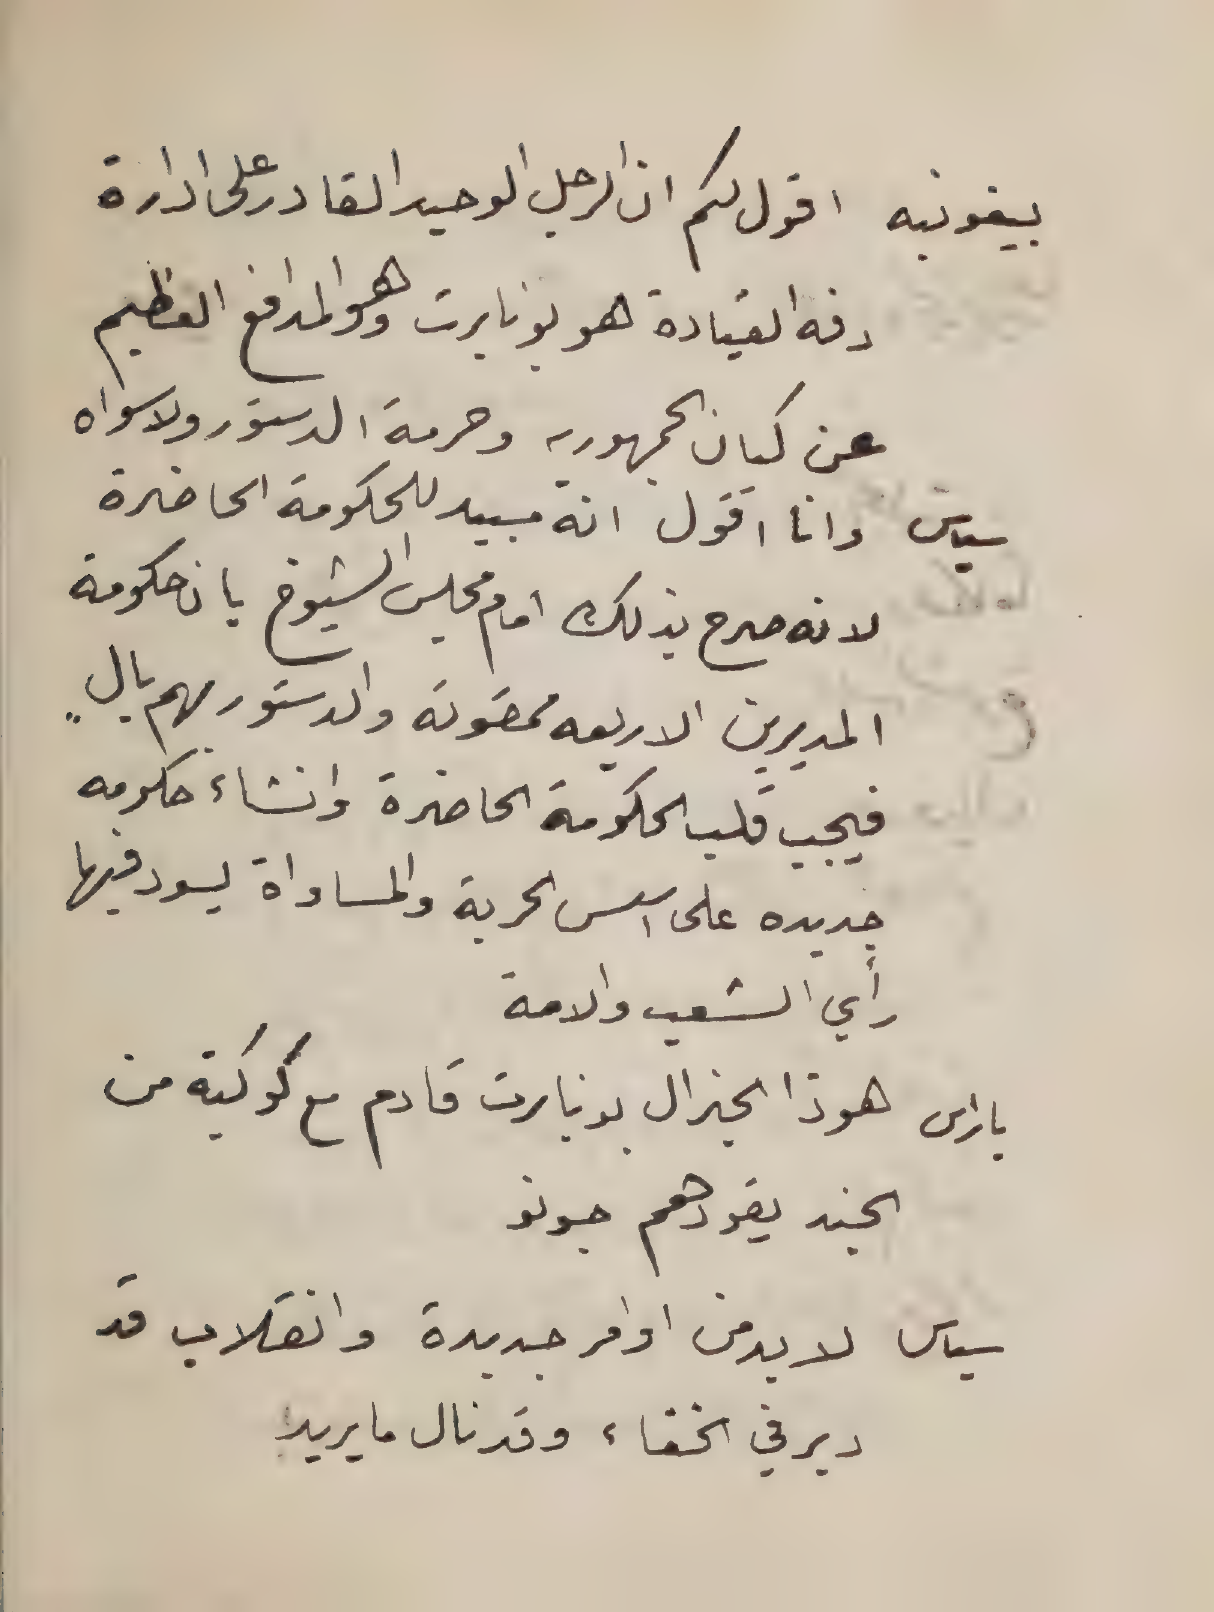 بيغونيه اقول لكم ان الرجل الوحيد القادر على ادارة
دفه القيادة هو بونابرت وهو المدافع العظيم
عن كيان الجمهوريه وحرمة الدستور ولا سواه
سياس وانا اقول انه مبيد للحكومة الحاضرة
لانه صرح بذلك امام مجلس الشيوخ بان حكومة
المديرين الاربعه ممقوته والدستور مهم بال
فيجب قلب الحكومة الحاضرة وانشاء حكومه
جديده على اسس الحرية والمساواة يسود فيها
رأي الشعب والامة
باراس هوذا الجنرال بونابرت قادم مع كوكبة من
الجند يقودهم جونو
سياس لا بد من اوامر جديدة وانقلاب قد
دبر في الخفاء وقد نال ما يريد